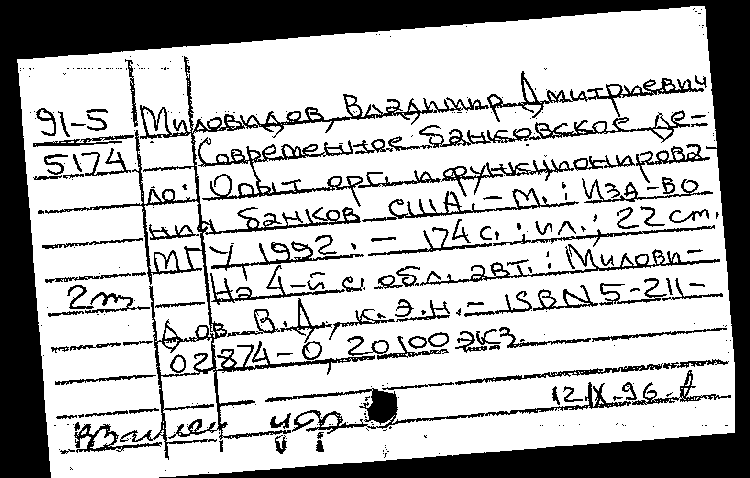 91-5 Миловидов, Владимир Дмитриевич
5174 Современное банковское де-
ло: Опыт орг. и функционирова-
ния банков США. - М.: Изд-во
МГУ, 1992. - 174 с.: ил.; 22 см.
2т На 4-й с. обл. авт.: Милови-
дов В.Д., к.э.н. - ISBN 5-211-
02874-0, 20100 экз.
12.IX-96